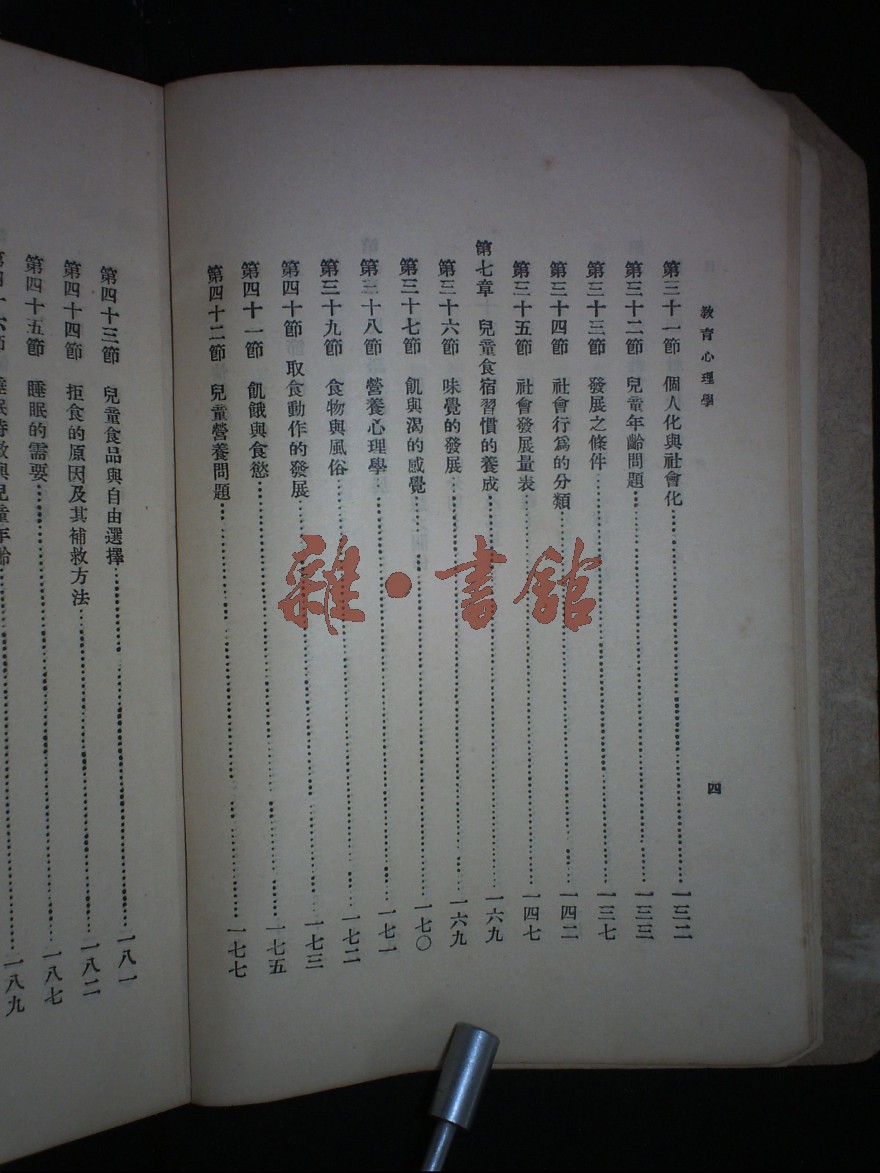 教育心理學
四
第三十一節 個人化與社會化……一三二
第三十二節 兒童年齡問題……一三三
第三十三節 發展之條件……一三七
第三十四節 社會行爲的分類……一四二
第三十五節 社會發展量表……一四七
第七章 兒童食宿習慣的養成……一六九
第三十六節 味覺的發展……一六九
第三十七節 飢與渴的感覺……一七〇
第三十八節 營養心理學……一七一
第三十九節 食物與風俗……一七二
第四十節 取食動作的發展……一七三
第四十一節 飢餓與食慾……一七五
第四十二節 兒童營養問題……一七七
第四十三節 兒童食品與自由選擇……一八一
第四十四節 拒食的原因及其補救方法……一八二
第四十五節 睡眠的需要……一八七
第四十六節 睡眠時數與兒童年齡……一八九
雜·書館